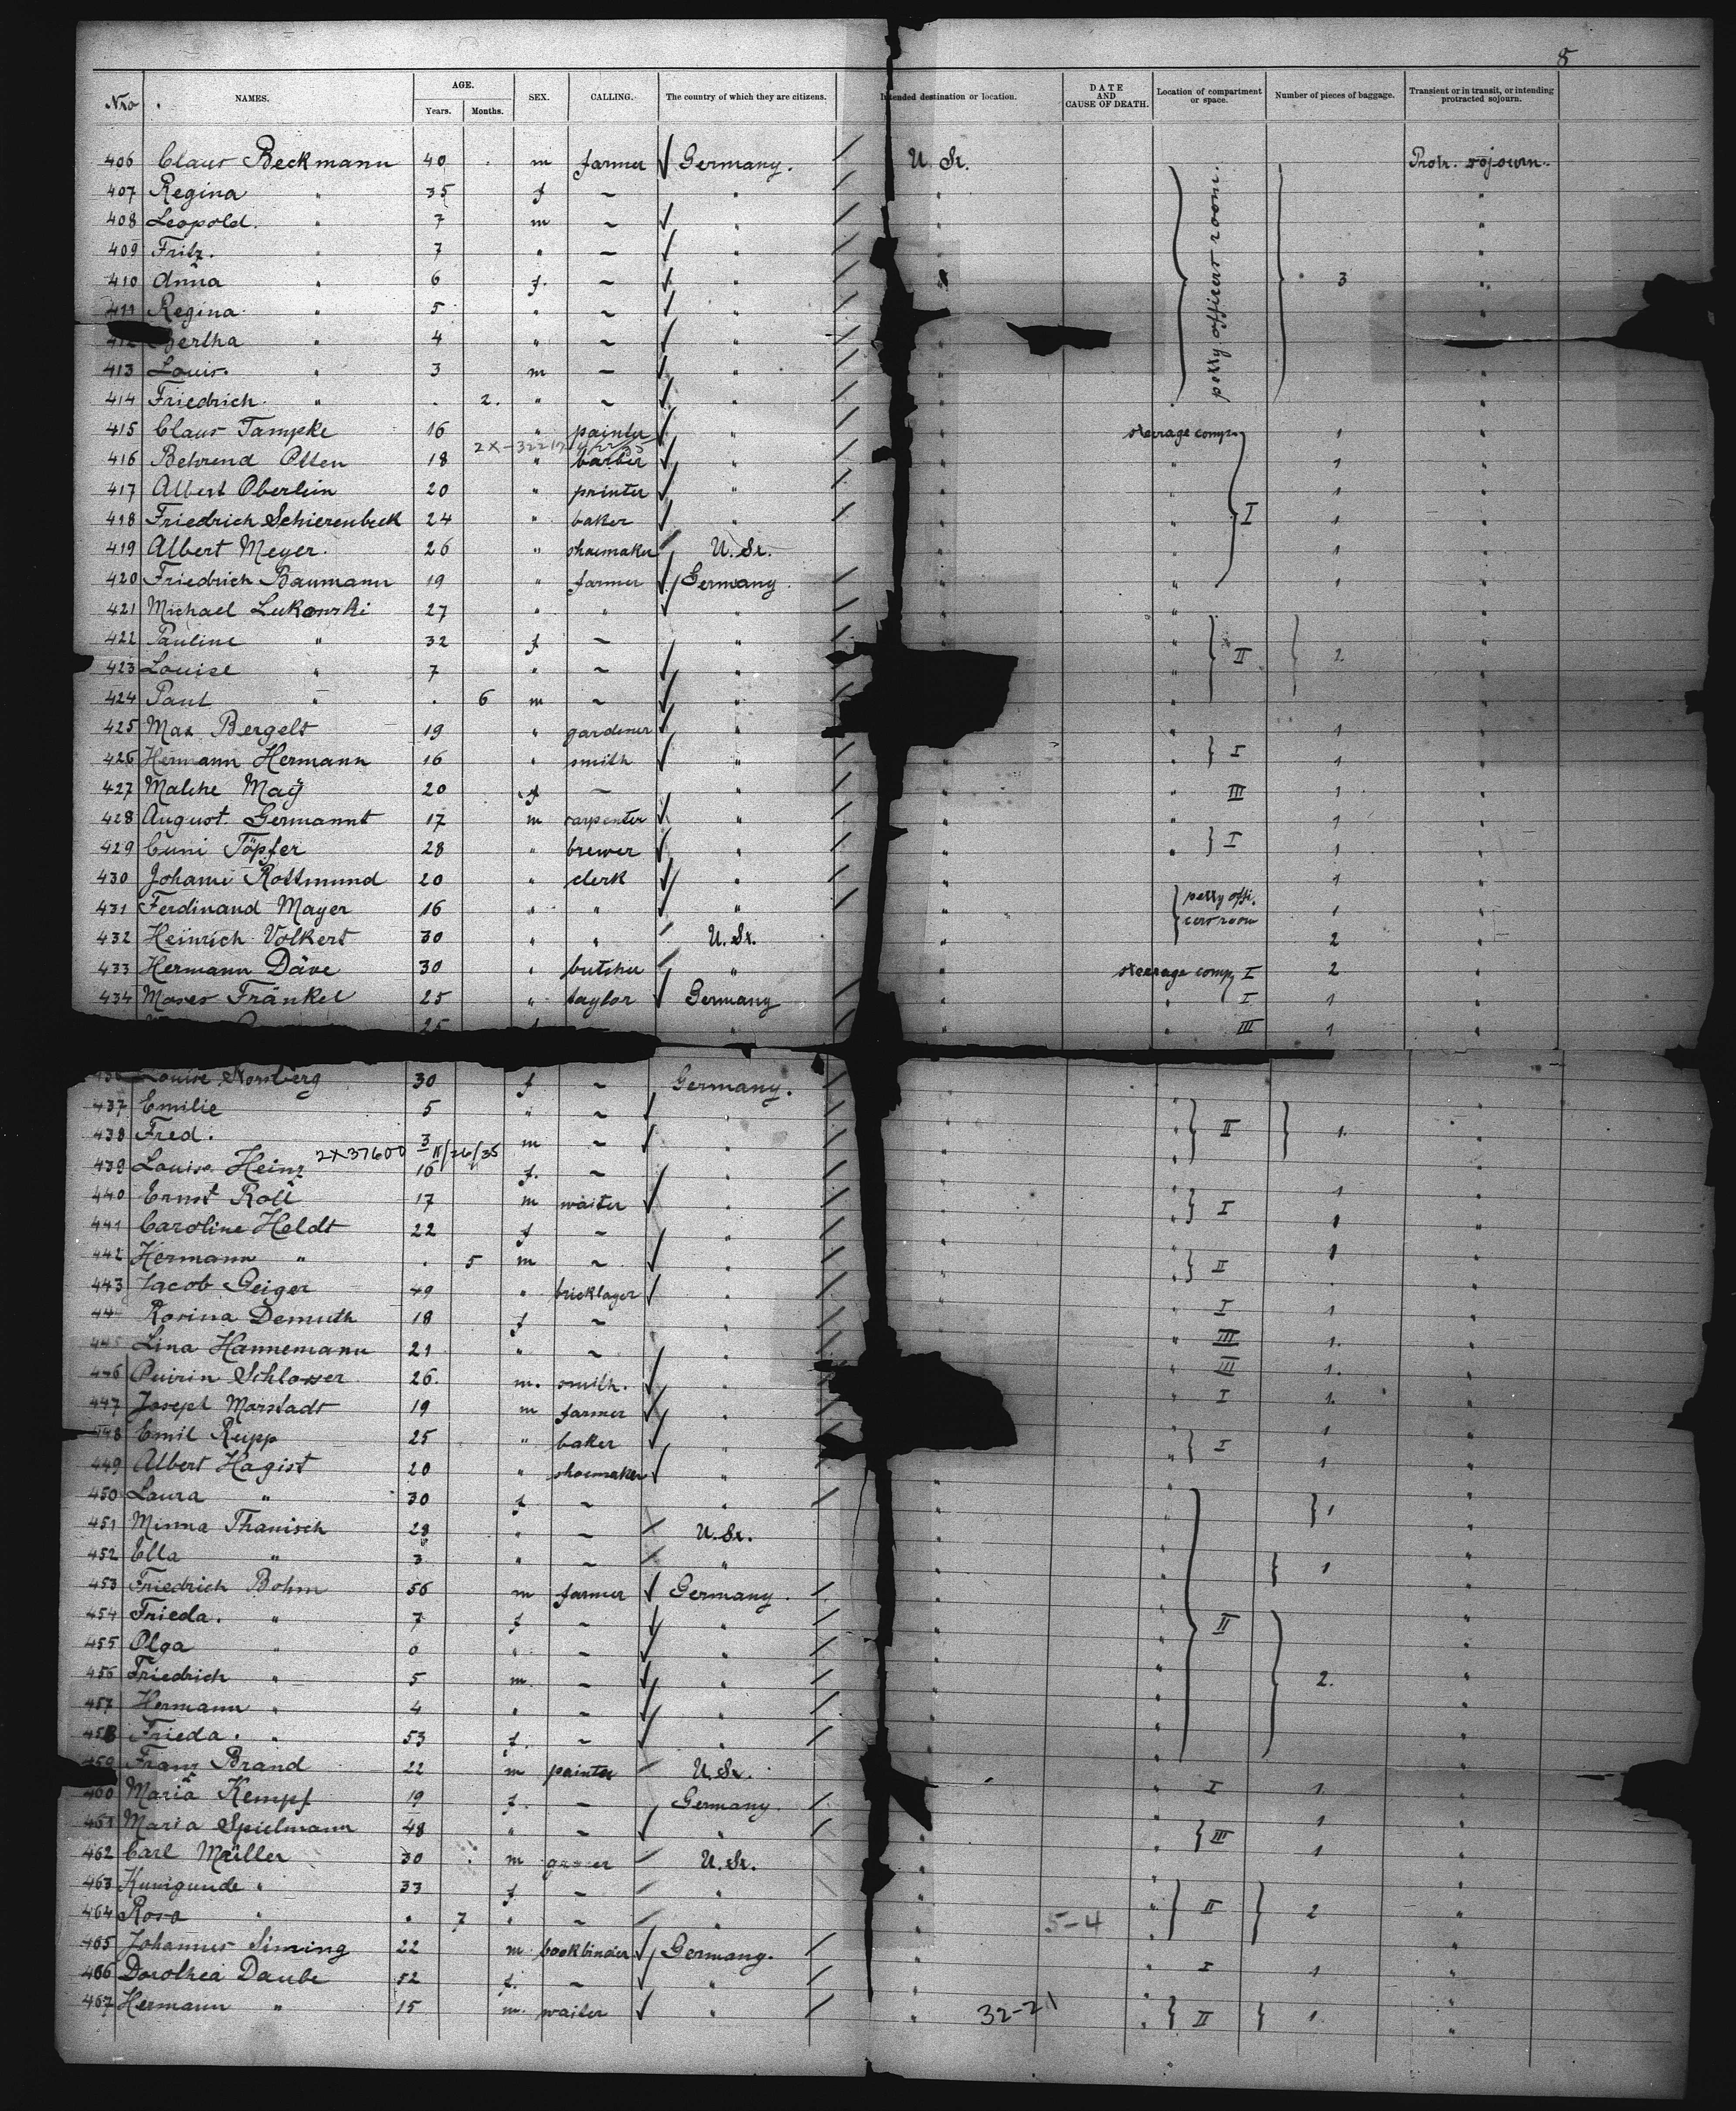 8
Nro NAMES. AGE. Years. Months. SEX. CALLING. The country of which they are citizens. Intended destination or location. DATE AND CAUSE OF DEATH. Location of compartment or space. Number of pieces of baggage. Transient or in transit, or intending protracted sojourn.
406 Claus Beckmann 40 . m farmer Germany. U. St. petty officers room. Protr. sojourn.
407 Regina " 35 f ~ " " "
408 Leopold. " 7 m ~ " " "
409 Fritz. " 7 " ~ " " "
410 Anna " 6 f. ~ " " 3 "
411 Regina " 5 " ~ " "
412 Bertha " 4 " ~ " "
413 Louis. " 3 m ~ " "
414 Friedrich. " . 2. " ~ " "
415 Claus Tampke 16 " painter " steerage comp. 1 "
2X-32217
416 Behrend Otten 18 " barber " " " 1 "
417 Albert Oberlein 20 " printer " " " 1 "
418 Friedrich Schierenbeck 24 " baker " " " I 1 "
419 Albert Meyer. 26 " shoemaker U. St. " " 1 "
420 Friedrich Baumann 19 " farmer Germany. " " 1 "
421 Michael Lukowski 27 " " " " " "
422 Pauline " 32 f ~ " " "
423 Louise " 7 " ~ " " II 2. "
424 Paul " . 6 m ~ " " "
425 Max Bergelt 19 " gardener " " 1 "
426 Hermann Hermann 16 " smith " " I 1 "
427 Malche Maÿ 20 f ~ " " " III 1 "
428 August. Germannt 17 m carpenter " " " 1 "
429 Cuni Töpfer 28 " brewer " " " I 1 "
430 Johann Rottmund 20 " clerk " " petty offi- 1 "
431 Ferdinand Mayer 16 " " " " cers room 1 "
432 Heinrich Volkert 30 " " U. St. " 2 "
433 Hermann Däve 30 " butcher " " steerage comp. I 2 "
434 Moses Fränkel 25 " taylor Germany " " I 1 "
25 " " III 1 "
Louise 30 f ~ Germany.
437 Emilie 5 " ~ " " II 1.
438 Fred. 3 m ~ " "
2X37600 11/26/35
439 Louise Heinz 16 f. ~ " "
440 Ernst Roll 17 m waiter " " I 1 "
441 Caroline Heldt 22 f ~ " " "
442 Hermann " . 5 m ~ " " II 1 "
443 Jacob Geiger 49 " bricklayer " " I 1 "
Rosina Demuth 18 f ~ " " III 1. "
Lina Hannemann 21 " ~ " " III 1. "
446 Quirin Schlosser 26. m. smith. " " I 1. "
447 Joseph Marstadt 19 m farmer " " 1 "
448 Emil Rupp 25 " baker " " I "
449 Albert Hagist 20 " shoemaker " " 1 "
450 Laura " 30 f ~ " " " 1 "
451 Minna Thanisch 28 " ~ U. St. " " "
452 Ella " 3 " ~ " " " 1 "
453 Friedrich Bohm 56 m farmer Germany. " " "
454 Frieda. " 7 f ~ " " II "
455 Olga " 6 " ~ " " "
456 Friedrich " 5 m ~ " " 2. "
457 Hermann " 4 " ~ " " "
458 Frieda. " 53 f. ~ " " "
459 Franz Brand 22 m painter U. St. " I 1. "
460 Maria Kempf 19 f. ~ Germany. " 1 "
461 Maria Spielmann 48 " ~ " " III 1 "
462 Carl Müller 30 m U. St. " "
463 Kunigunde " 33 f ~ " " "
464 Rosa " . 7 " ~ " " 5-4 " II 2 "
465 Johannes Siming 22 m bookbinder Germany. " " I 1 "
466 Dorothea Daube 52 f. ~ " " "
467 Hermann " 15 m. waiter " " 32-21 " II 1. "